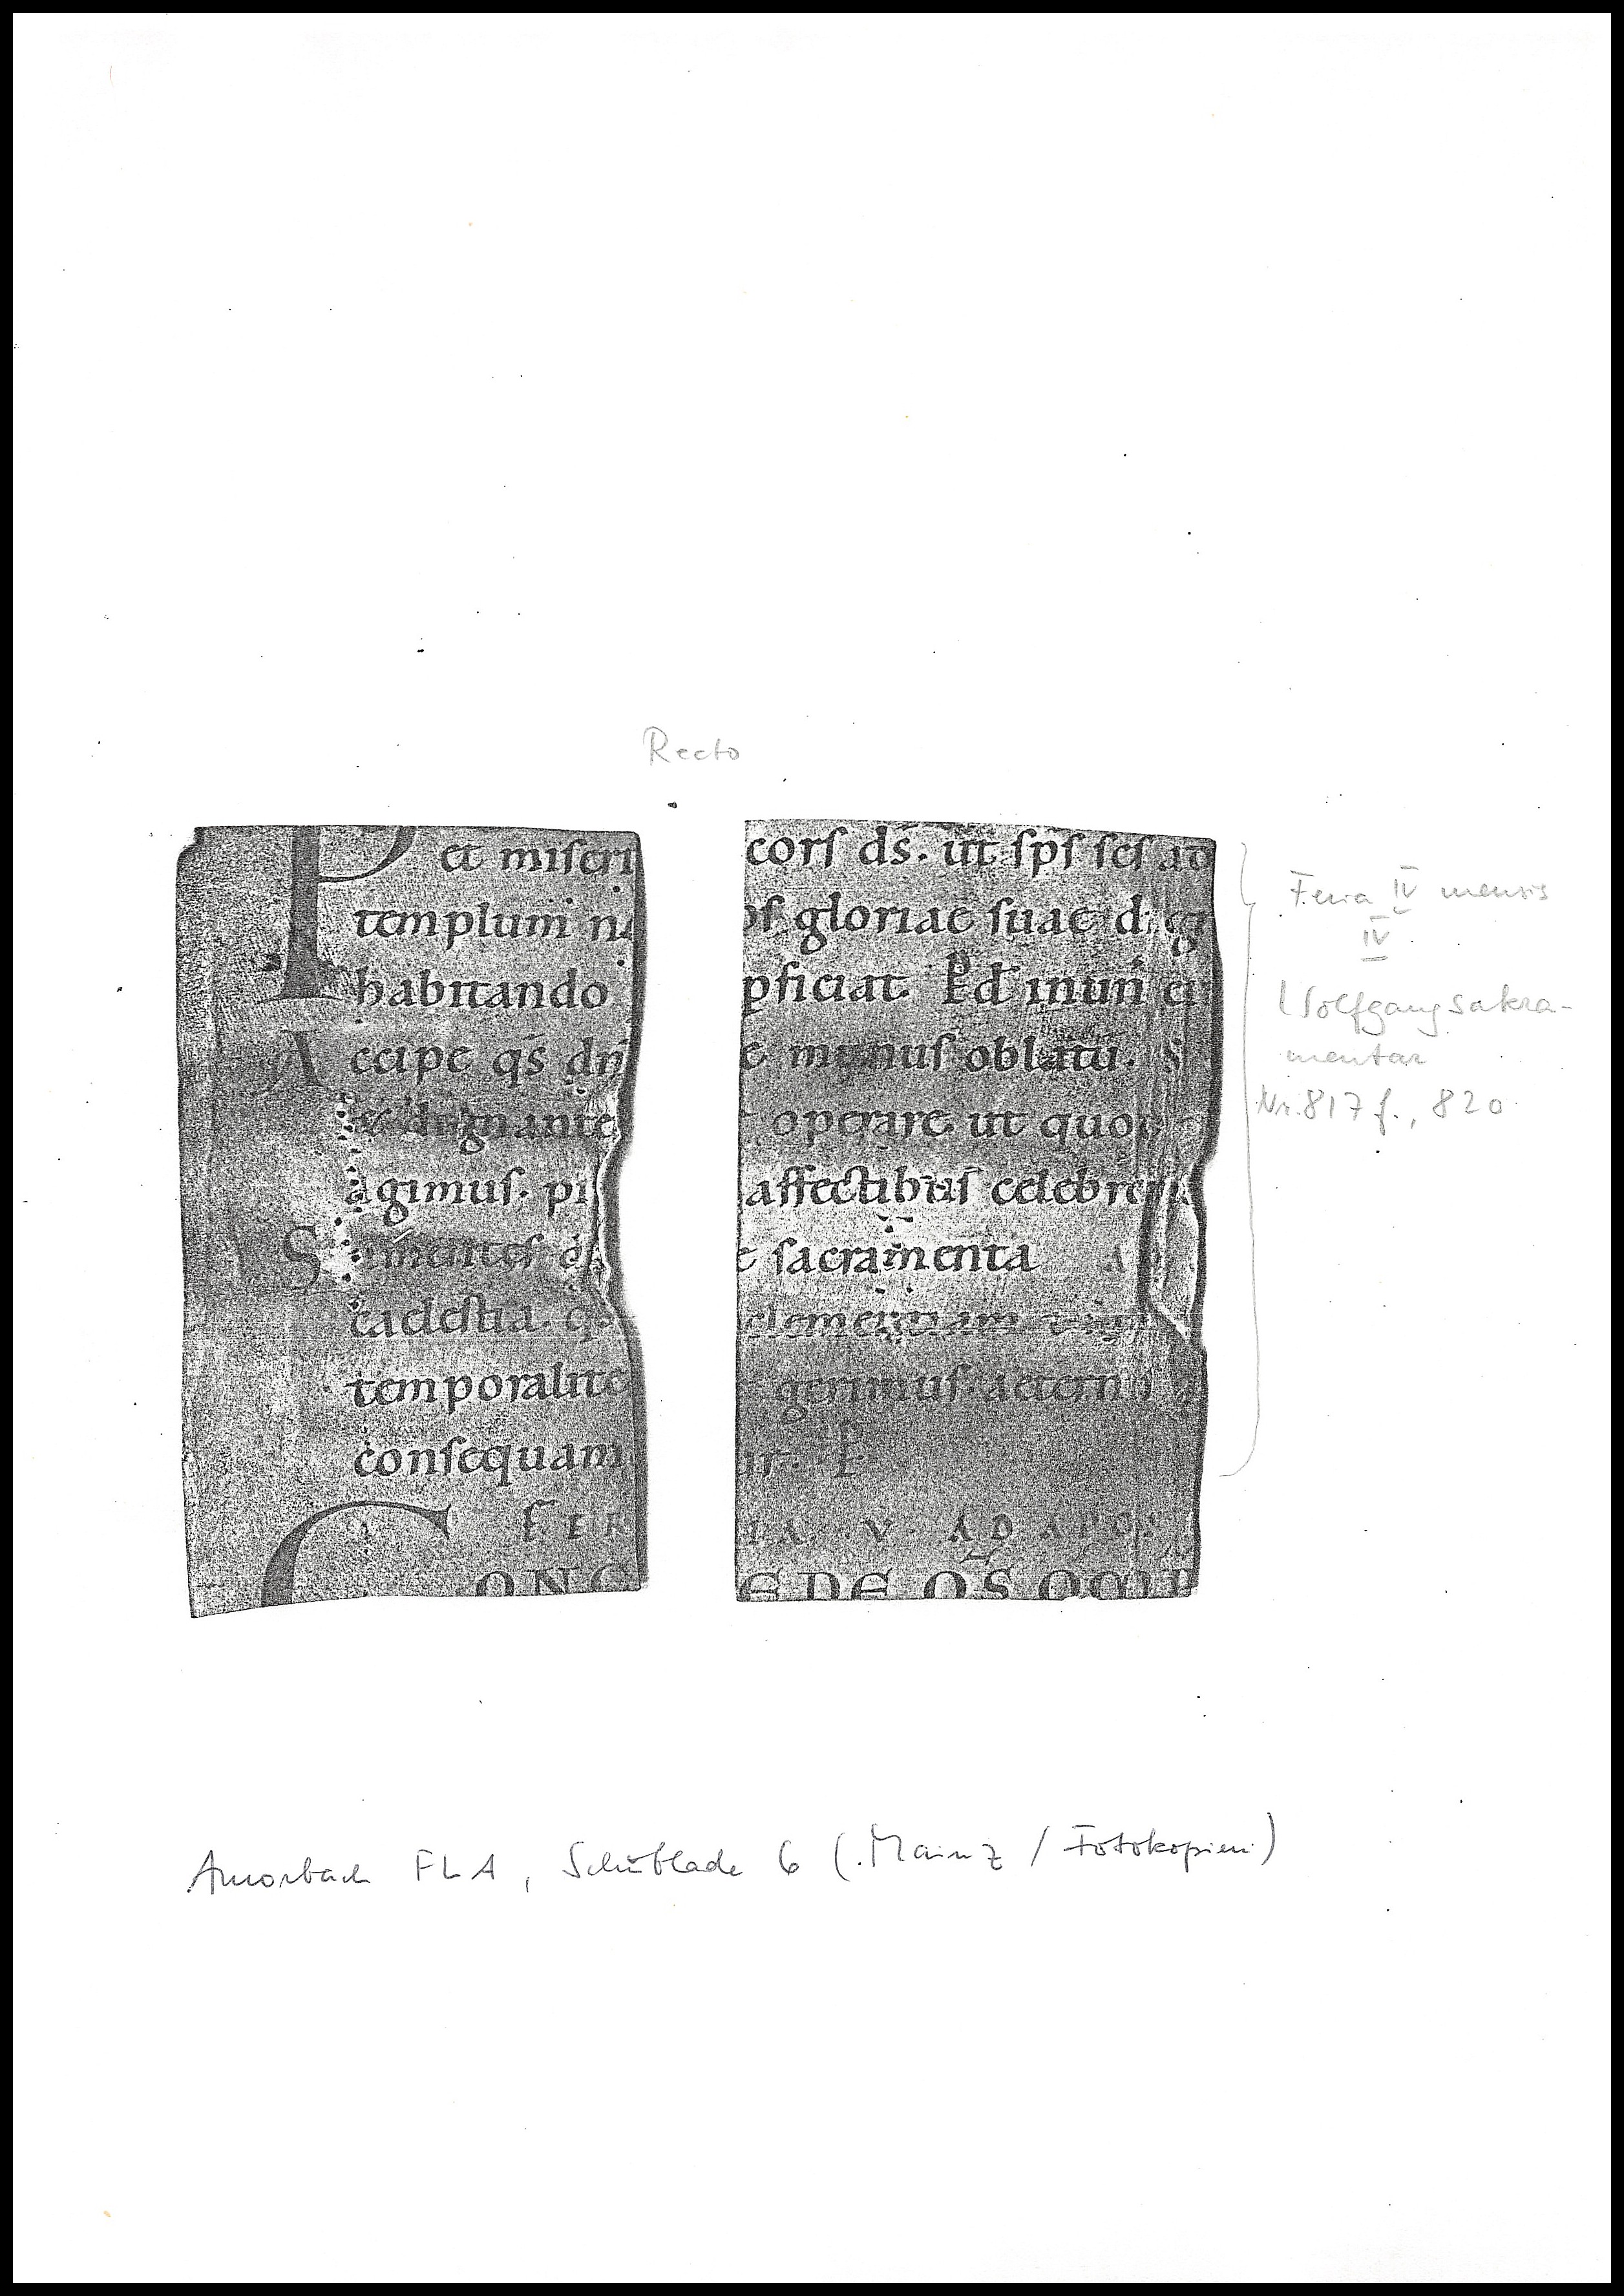 Recto
P
et miseri
templum n
habitando
Accipe qs dn
& dignante
agimus. pi
Sumentes d
caelestia. q
temporalite
consequam
FER
CONC
cors ds. ut sps scs ad
os gloriae suae d
pficiat. P d inun
e munus oblatu. S
operare ut quod
affectibus celebre
e sacramenta
clementiam
gerimus. aetern
ur. P
IA. V. AD APOS
EDE QS OMP
Feria IV mensis
IV
Wolfgangsakra-
mentar
Nr. 817 f., 820
Amorbach FLA, Schublade 6 (Mainz / Fotokopien)